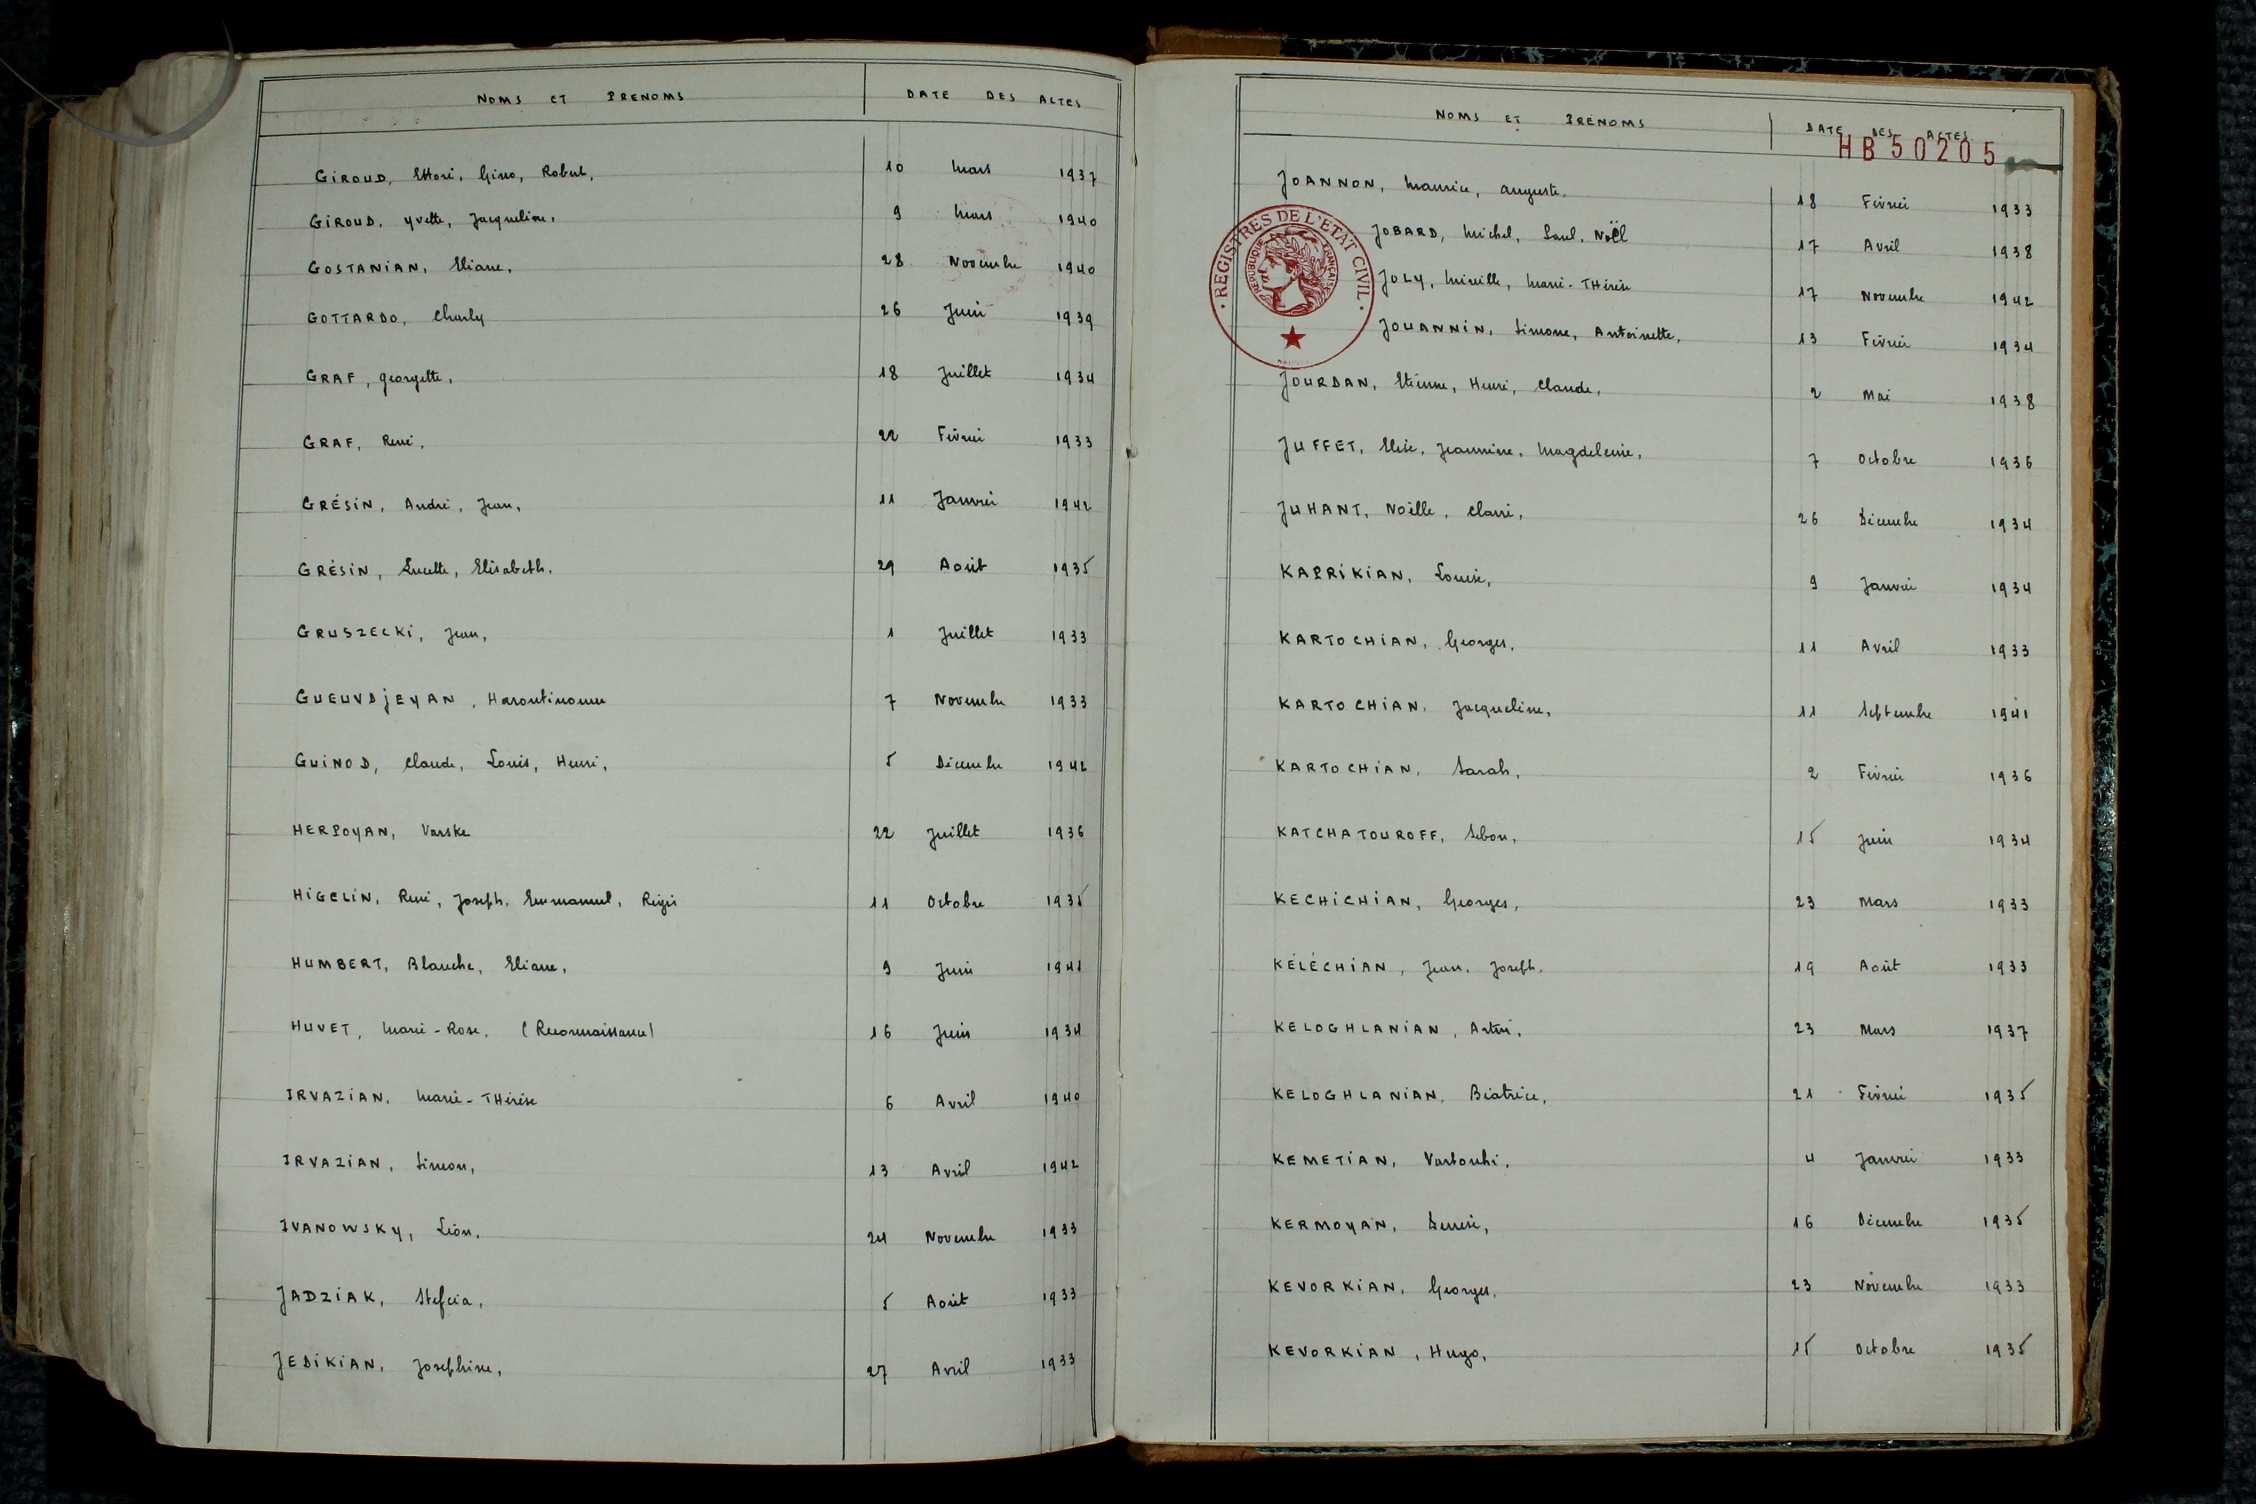 NOMS ET PRENOMS DATE DES ACTES
GIROUD, Ettori, Gino, Robert, 10 Mars 1937
GIROUD, Yvette, Jacqueline, 9 Mars 1940
GOSTANIAN, Eliane, 28 Novembre 1940
GOTTARDO, Charly 26 Juin 1939
GRAF, Georgette, 18 Juillet 1934
GRAF, René, 22 Février 1933
GRÉSIN, André, Jean, 11 Janvier 1942
GRÉSIN, Lucette, Elisabeth. 29 Août 1935
GRUSZECKI, Jean, 1 Juillet 1933
GUEUVDJEYAN, Haroutinoun 7 Novembre 1933
GUINOD, Claude, Louis, Henri, 5 Décembre 1942
HERPOYAN, Varske 22 Juillet 1936
HIGELIN, René, Joseph, Emmanuel, Régis 11 Octobre 1935
HUMBERT, Blanche, Eliane, 9 Juin 1941
HUVET, Marie-Rose, (Reconnaissance) 16 Juin 1934
IRVAZIAN, Marie-Thérèse 6 Avril 1940
IRVAZIAN, Simon, 13 Avril 1942
IVANOWSKY, Léon, 24 Novembre 1933
JADZIAK, Stefcia, 5 Août 1933
JEDIKIAN, Josephine, 27 Avril 1933
NOMS ET PRÉNOMS DATE DES ACTES
HB50205
JOANNON, Maurice, Auguste. 18 Février 1933
JOBARD, Michel, Paul, Noël 17 Avril 1938
JOLY, Mireille, Marie-Thérèse 17 Novembre 1942
JOUANNIN, Simone, Antoinette, 13 Février 1934
REGISTRES DE L'ETAT CIVIL
REPUBLIQUE FRANÇAISE
JOURDAN, Etienne, Henri, Claude, 2 Mai 1938
JUFFET, Elise, Jeannine, Magdeleine, 7 Octobre 1936
JUHANT, Noëlle, Claire, 26 Décembre 1934
KAPRIKIAN, Louise, 9 Janvier 1934
KARTOCHIAN, Georges, 11 Avril 1933
KARTOCHIAN, Jacqueline, 11 Septembre 1941
KARTOCHIAN, Sarah, 2 Février 1936
KATCHATOUROFF, Sebon, 15 Juin 1934
KECHICHIAN, Georges, 23 Mars 1933
KÉLÉCHIAN, Jean, Joseph, 19 Août 1933
KELOGHLANIAN, 23 Mars 1937
KELOGHLANIAN, Béatrice, 21 Février 1935
KEMETIAN, Vartouhi, 4 Janvier 1933
KERMOYAN, 16 Décembre 1935
KEVORKIAN, Georges, 23 Novembre 1933
KEVORKIAN, Hugo, 15 Octobre 1935